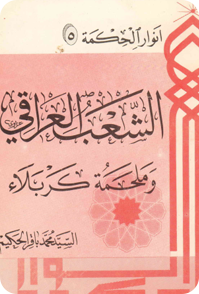 انوار الحكمة ٥
الشَّعبُ العَراقي
وَمَلحَمَة كَربَلاء
السَيّد مُحَمّد باقر الحَكيم